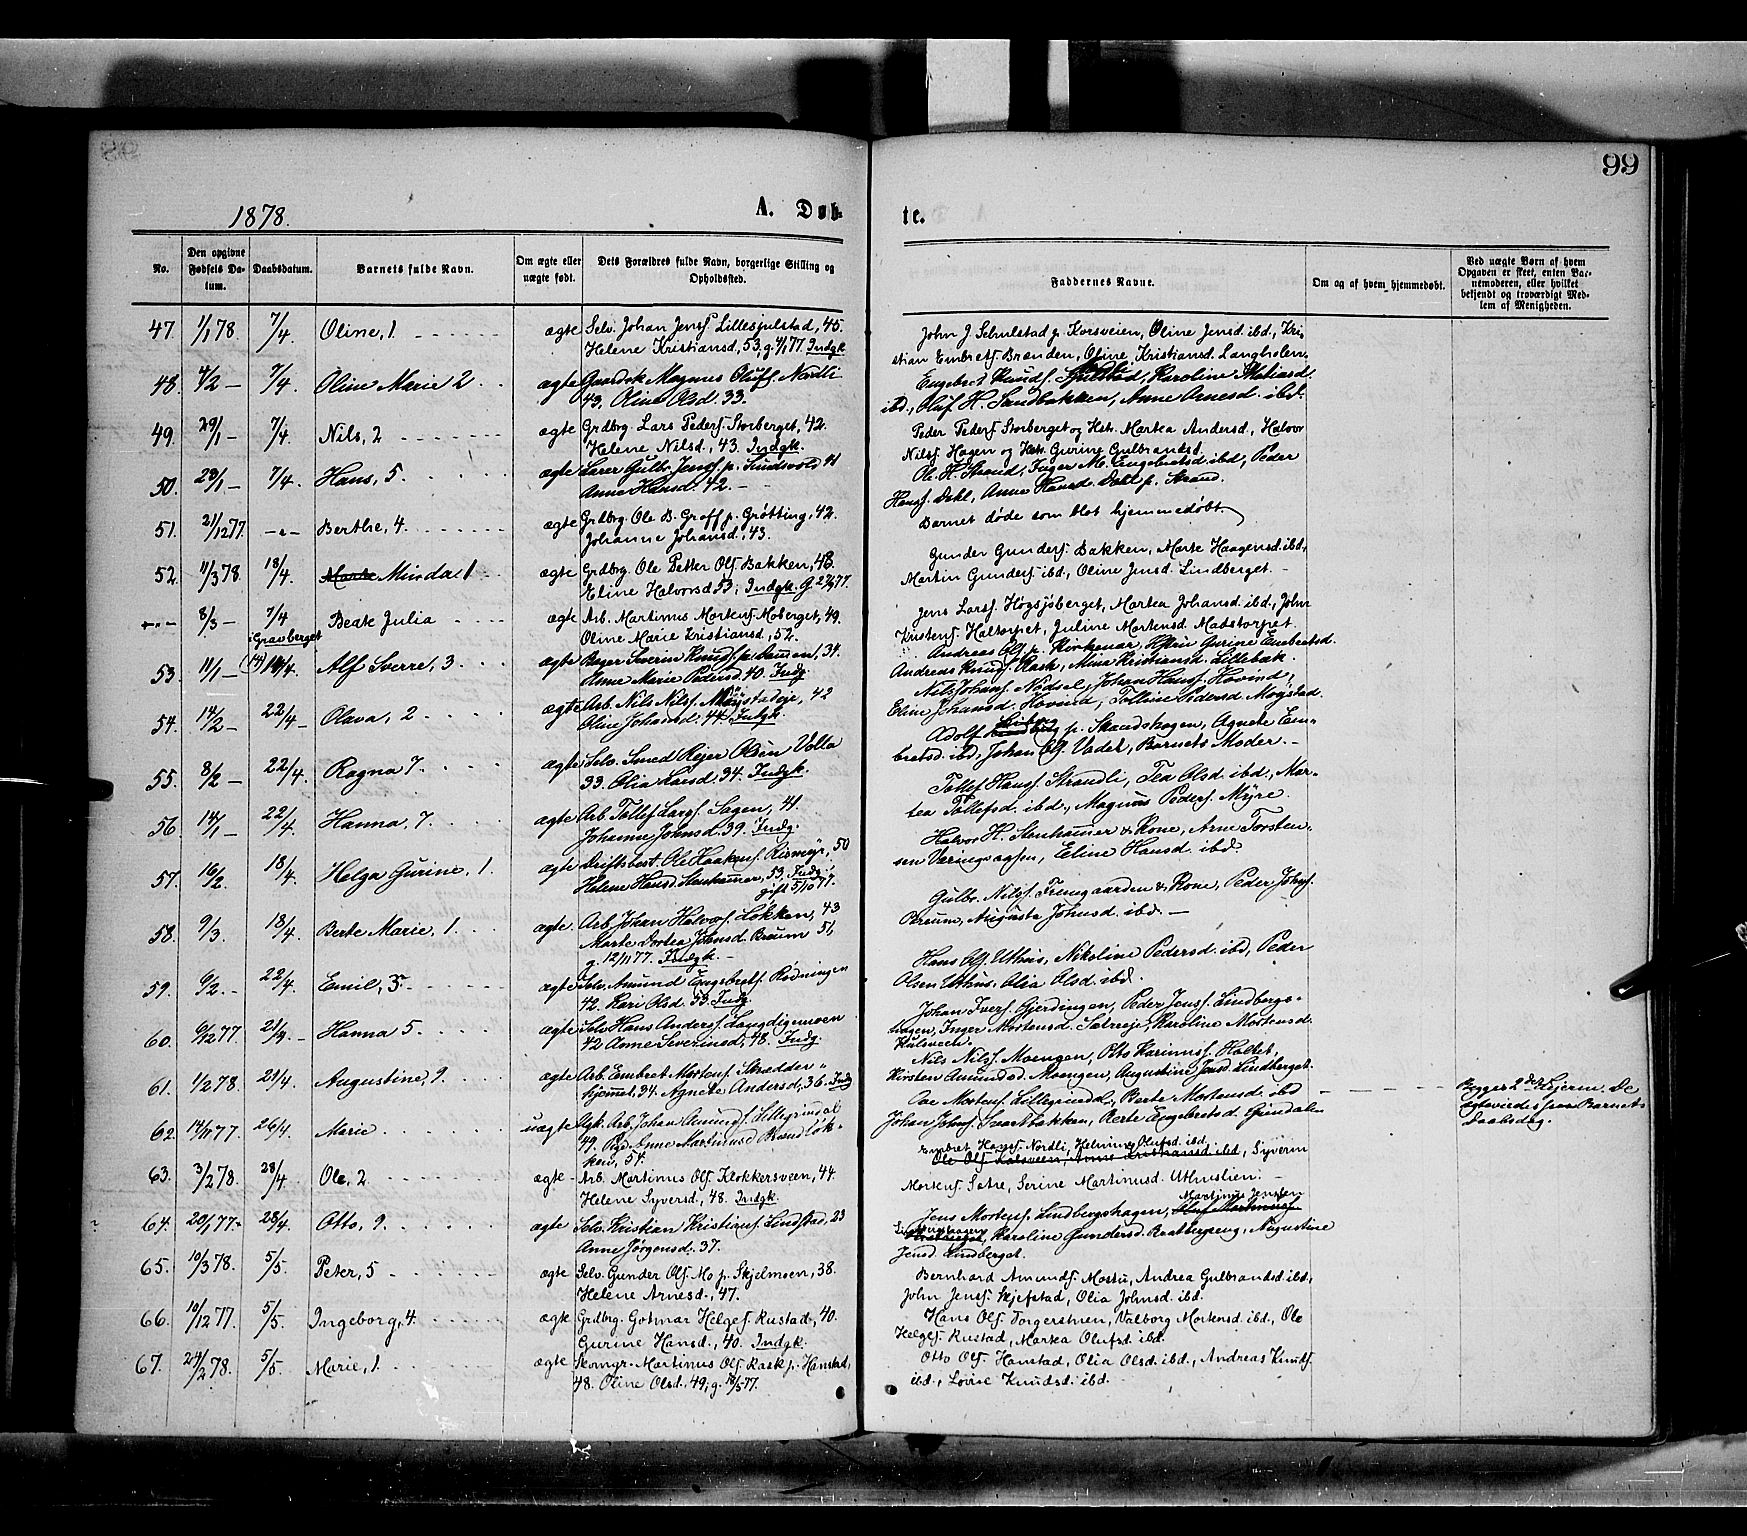 99
1878.
A. Døb-
te.
No.
Den opgivne Fødsels Da-tum.
Daabsdatum.
Barnets fulde Navn.
Om ægte eller uægte født.
Dets Forældres fulde Navn, borgerlige Stilling og Opholdssted.
Faddernes Navne.
Om og af hvem hjemmedøbt.
Ved uægte Børn af hvem Opgaven er skeet, enten Bar-nemoderen, eller hvilket bekjendt og troværdigt Med-lem af Menigheden.
47. 1/1 78. 7/4. Oline, 1 ægte Selv. Johan Jenss. Lillesjulstad, 45.
Helene Kristiansd., 53, g. 4/1 77. Indgk.
John J. p. Korsveien, Oline Jensd. ibd., Kri-
stian Embrets. Brænden, Oline Kristiansd. Langholen.
48. 4/2 — 7/4. Oline Marie 2 ægte Gaardbr. Magnus Olufs. Nordli
43. Oline Olsd. 33.
Engebret Knuds. Karoline
ibd., Oluf H. Sandbakken, Anne Arnesd. ibd.
49. 29/1 — 7/4. Nils, 2 ægte Grdbrg. Lars Peders. Storberget, 42.
Helene Nilsd., 43. Indgk.
Peder Peders. Storberget og Kstr. Martea Andersd., Halvor
Nilss. Hagen og Kstr. Gurine Gulbrandsd.
50. 28/1 — 7/4. Hans, 5. ægte Lærer Gulbr. Jenss. p. Sundvold 41
Anne Hansd. 42. —
Ole H. Strand, Inger M. Engebretsd. ibd., Peder
Hanss. Dahl, Anne Hansd. Dahl p. Strand.
51. 21/12 77. — „ — Berthe, 4. ægte Grdbrg. Ole B. Groff p. Grøtting, 42.
Johanne Johansd., 43.
Barnet døde som blot hjemmedøbt.
52. 11/3 78. 18/4. Marte Minda 1 ægte Grdbrg. Ole Petter Ols. Bakken, 48.
Eline Halvorsd. 53, Indgk. G. 77.
Gunder Gunders. Bakken, Marte Haagensd. ibd.,
Martin Gunders. ibd., Oline Jensd. Lindberget. —
8/3 — 7/4 Beate Julia ægte Arb. Martinus Mortens. Moberget, 49.
i Gravberget
Oline Marie Kristiansd., 52.
Jens Larss. Høgsjøberget, Martea Johansd. ibd., John
Kristens. Haltorpet, Juline Mortensd. Madstorpet.
53. 11/1 — 14/4. Alf Sverre, 3 ægte Bager Severin Knuds. p. 34.
Anne Marie Pedersd. 40. Indg.
Andreas Ols. p. Kirkenær, Gurine Embretsd.
Andreas Knuds. Rask, Mina Kristiansd. Lillebæk.
54. 14/2 — 22/4 — Olava, 2 ægte Arb. Nils Nilss. Møystadeje, 42
Oline Johansd. 44. Indgk.
Nils Johans. Nødsel, Johan Hanss. Hovind,
Eline Johansd. Hovind, Tolline Pedersd. Møystad.
55. 8/2 — 22/4. Ragna 7. ægte Selv. Smed Rejer Olsen Volla
33. Olia Larsd. 34. Indgk.
Adolf p. Skaashagen, Agnete Em-
bretsd. ibd., Johan Ols. Vadet, Barnets Moder. —
56. 14/1 — 22/4. Hanna, 7. ægte Arb. Tollef Larss. Sagen, 41.
Johanne Johnsd. 39. Indg.
Tollef Hanss. Strandli, Tea Olsd. ibd., Mar-
tea Tollefsd. ibd., Magnus Peders. Myre.
57. 16/2. 18/4. Helga Gurine, 1. ægte Driftsbest. Ole Haakens. Rismyr, 50
Helene Hansd. Stenhammer, 53. Indg.
gift 5/10 77.
Halvor H. Stenhammer & Kone, Arne Torsten-
sen Væringsaasen, Eline Hansd. ibd.
58. 9/3. 18/4. Berte Marie, 1. ægte Arb. Johan Halvors. Løkken, 43
Marte Dortea Johnsd. Braum 51,
g. 12/11 77. Indgk. —
Gulbr. Nilss. Framgaarden & Kone, Peder Johns.
Braum, Augusta Johnsd. ibd. —
59. 9/2. — 22/4. Emil, 3. ægte Selv. Amund Engebrets. Rødningen
42. Kari Olsd. 53. Indg.
Hans Ols. Uthus, Nikoline Pedersd. ibd., Peder
Olsen Uthus, Olia Olsd. ibd.
60. 9/12 77. 21/3. — Hanna 5. ægte Selv. Hans Anderss. Langdigemoen
42 Anne Severinsd., 48. Indg.
Johan Ivers. Gjerdingen, Peder Jenss. Lindbergs-
hagen, Inger Mortensd. Sætreeje, Karoline Mortensd.
Kulsveen.
61. 1/2 78. 21/4. Augustine, 9. ægte Arb. Embret Mortens. Skrædder-
hjemmet, 34. Agnete Andersd., 36. Indg.
Nils Nilss. Moengen, Otto Karinius. Holtet,
Kirsten Amundsd. Moengen, Augustine Jensd. Lindberget.
62. 14/11 77. 26/4. Marie uægte Ugk. Arb. Johan Amunds. Lillegrindal
49. Pige Anne Martinusd. Brændløk-
ken, 54.
Ove Mortens. Lillegrindal, Berte Mortensd. ibd.
Johan Johns. Svartbakken, Berte Engebretsd. Grindalen
Begges 2det Lejerm. De
egteviedes paa Barnets
Daabsdag.
63. 3/2 78. 28/4. Ole, 2 ægte Arb. Martinus Ols. Klokkersveen, 44.
Helene Syversd., 48. Indgk.
Embret Hanss. Nordli, Helmine Olufsd. ibd.
Ole Ols. Kulsveen, Anne Kristiansd. ibd., Syverin
Mortens. Sætre, Serine Martinusd. Uthuslien. —
64. 20/1 77. 28/4. Otto, 9. ægte Selv. Kristian Kristians. Lindstad, 23
Anne Jørgensd. 37.
Martinus Jensen
Jens Mortens. Lindbergshagen,
Karoline Gundersd. Bratterpeng, Augustine
Jensd. Lindberget.
65. 10/3 78. 5/5. Peter, 5 ægte Selv. Gunder Ols. Mo p. Skjelmoen, 38.
Helene Arnesd., 47.
Bernhard Amunds. Mostu, Andrea Gulbrandsd. ibd.,
John Jenss. Skjefstad, Olia Johnsd. ibd.
66. 10/12 77. 5/5. Ingeborg, 4. ægte Grdbrg. Gotmar Helges. Rustad, 40.
Gurine Hansd., 40. Indgk.
Hans Ols. Torgerstuen, Valborg Mortensd. ibd., Ole
Helges. Rustad, Martea Olufsd. ibd.
67. 24/2 78. 5/5. Marie, 1. ægte Skomgr. Martinus Ols. Rask p. Hanstad,
48. Oline Olsd. 49, g. 18/5 77.
Otto Ols. Hanstad, Olia Olsd. ibd., Andreas Knuds.
ibd., Lovise Knudsd. ibd.